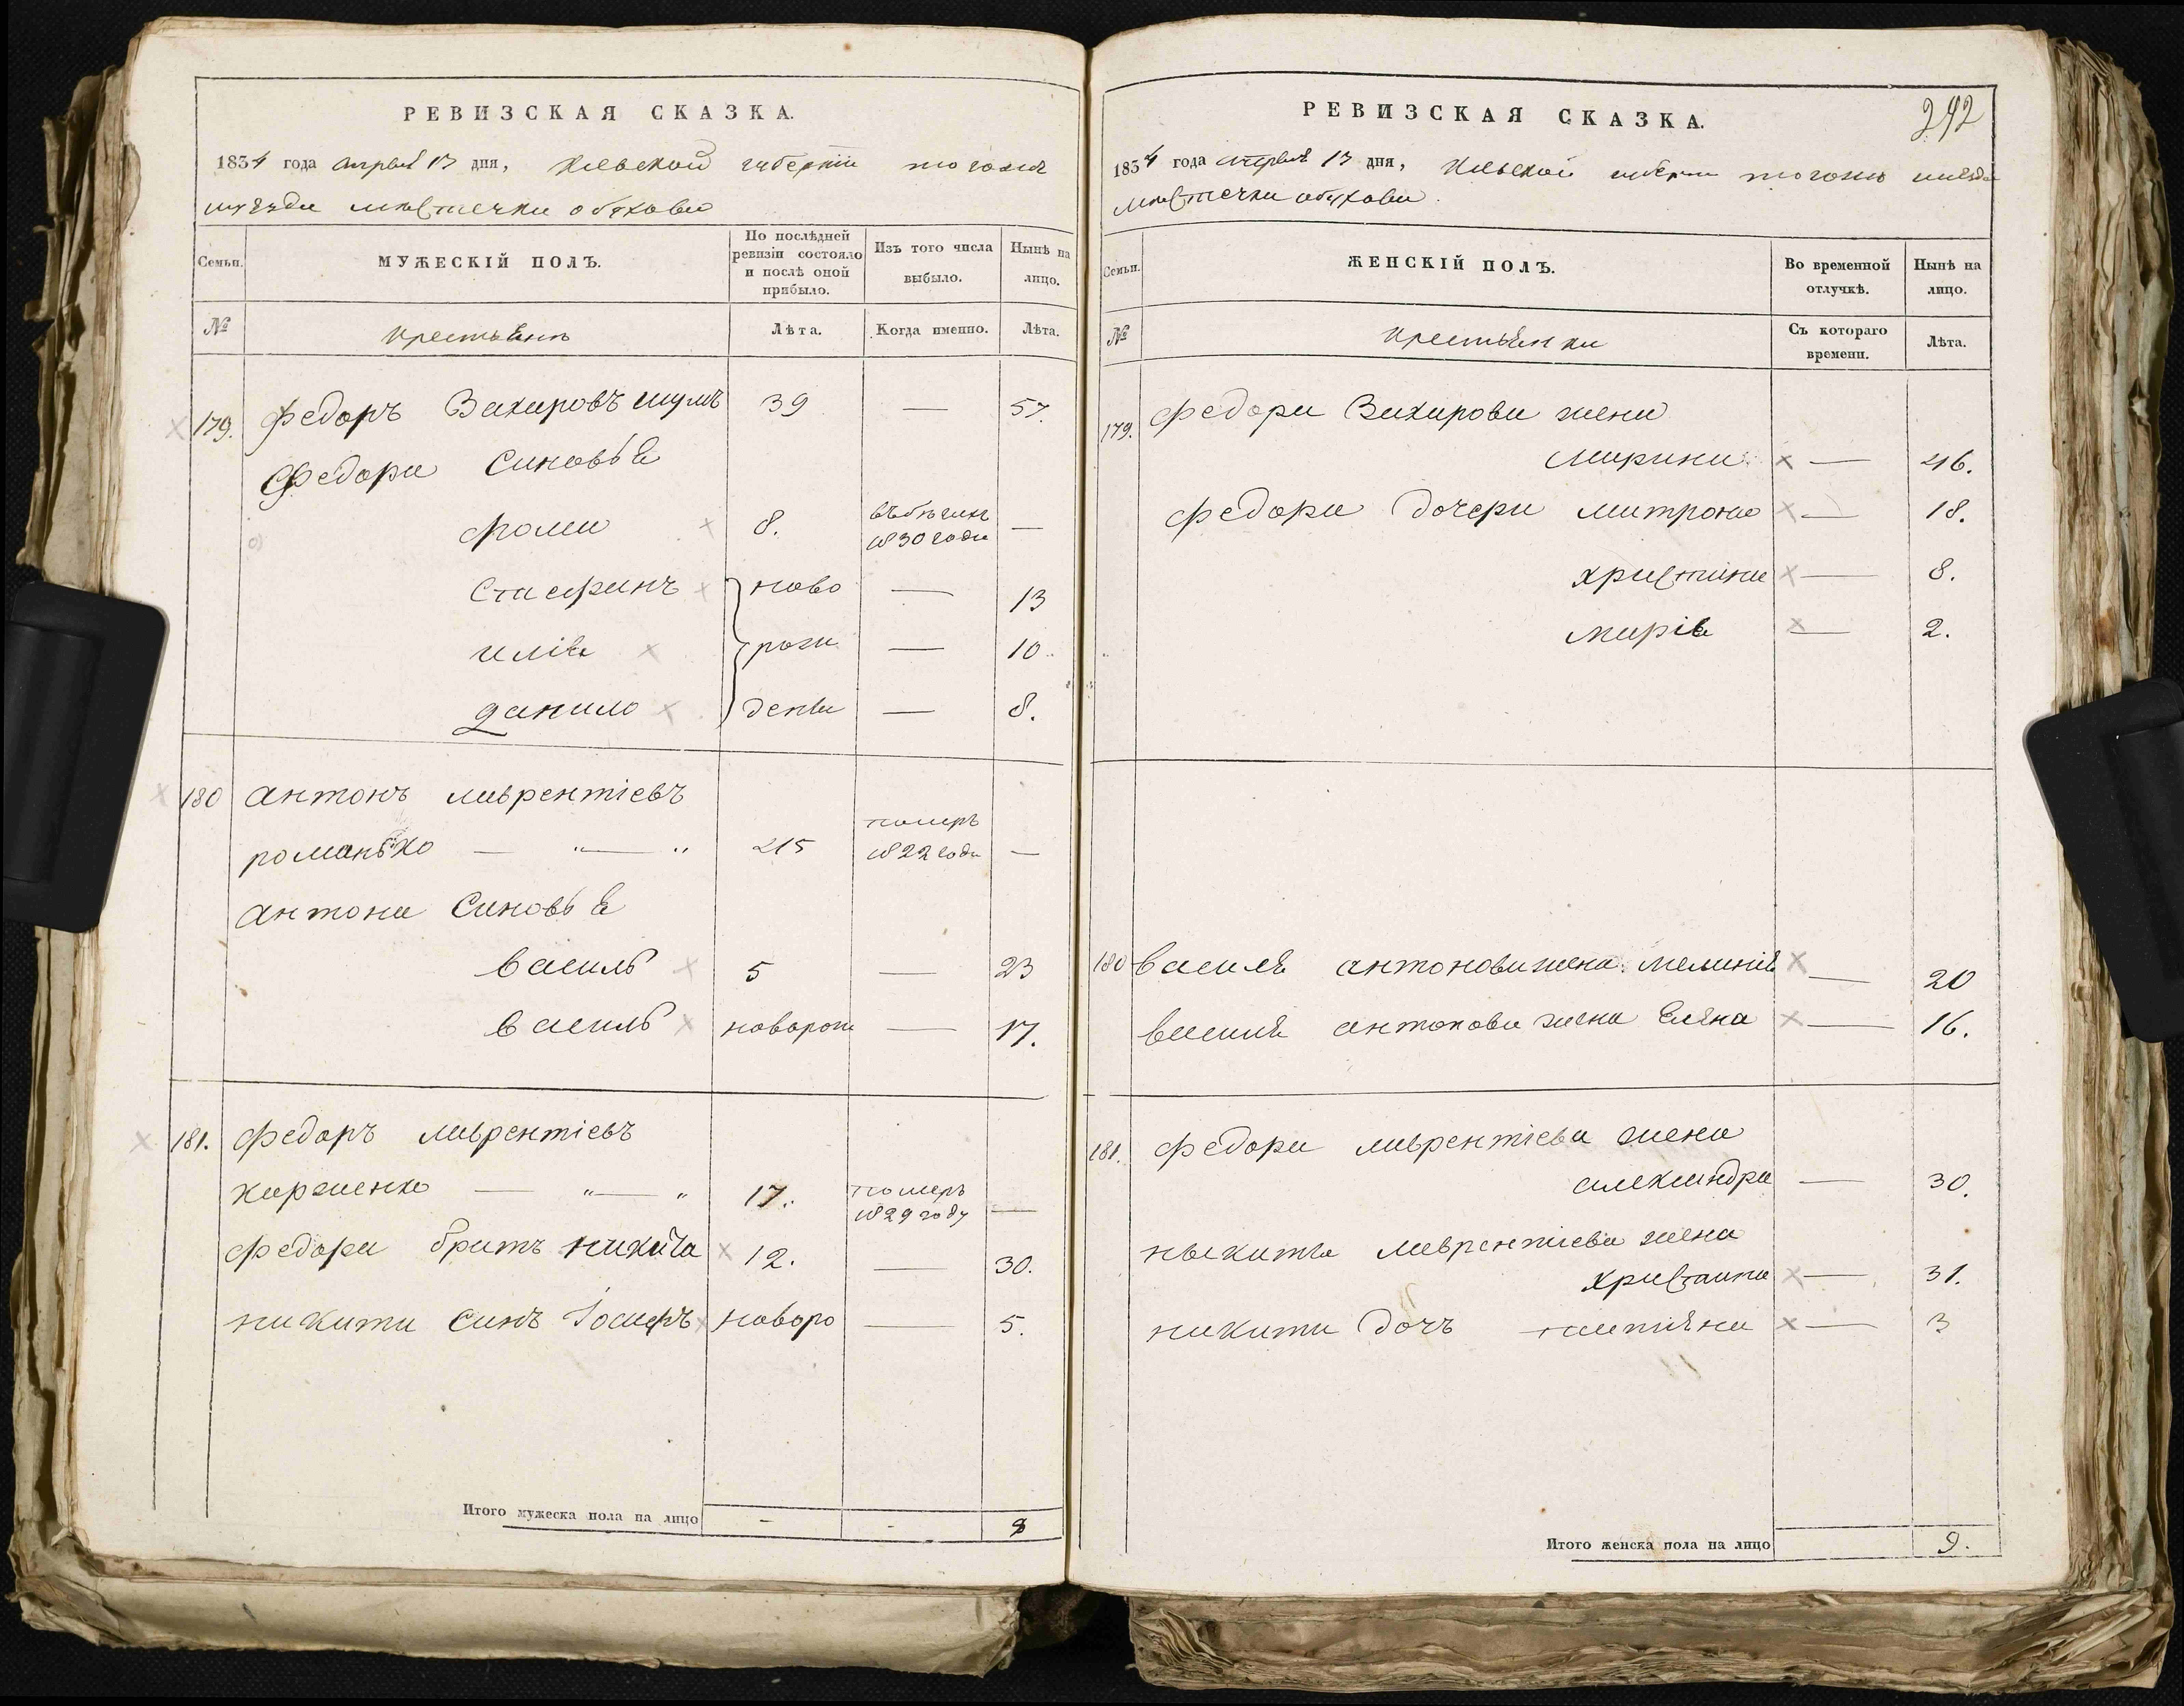 РЕВИЗСКАЯ СКАЗКА.
1834 года апреля 13 дня, Киевской губернии того же
уезда местечка обухова
Семьи.
МУЖЕСКІЙ ПОЛЪ.
По послѣдней ревизіи состояло и послѣ оной прибыло.
Изъ того числа выбыло.
Нынѣ на лицо.
№
крестьяне
Лѣта.
Когда именно.
Лѣта.
179. Федоръ Захаровъ 39 — 57.
Федора Синовья
фома 8. 1830 года —
Стасфанъ } ново — 13
илія } рож — 10
данило } дения — 8.
180 антонъ лаврентіевъ
романько — " — " 45 померъ 1822 года —
антона Синовья
василь 5 — 23
василь новорож — 17.
181. федоръ лаврентіевъ
— " — " 17. померъ 1829 году —
федора братъ никита 12. — 30.
никити Синъ Іосифъ новоро — 5.
Итого мужеска пола на лицо - - 8
РЕВИЗСКАЯ СКАЗКА.
242
1834 года апреля 13 дня, Киевской губернии того же уезда
местечка обухова.
Семьи.
ЖЕНСКІЙ ПОЛЪ.
Во временной отлучкѣ.
Нынѣ на лицо.
№
крестьянки
Съ котораго времени.
Лѣта.
179. федора Захарова жена
марина — 46.
федора дочери матрона — 18.
христина — 8.
марія — 2.
180 василя антонова жена меланія — 20
василя антонова жена Елена — 16.
181. федора лаврентіева жена
александра — 30.
ныкити лаврентіева жена
христина — 31.
никити дочъ татіяна — 3
Итого женска пола на лицо 9.